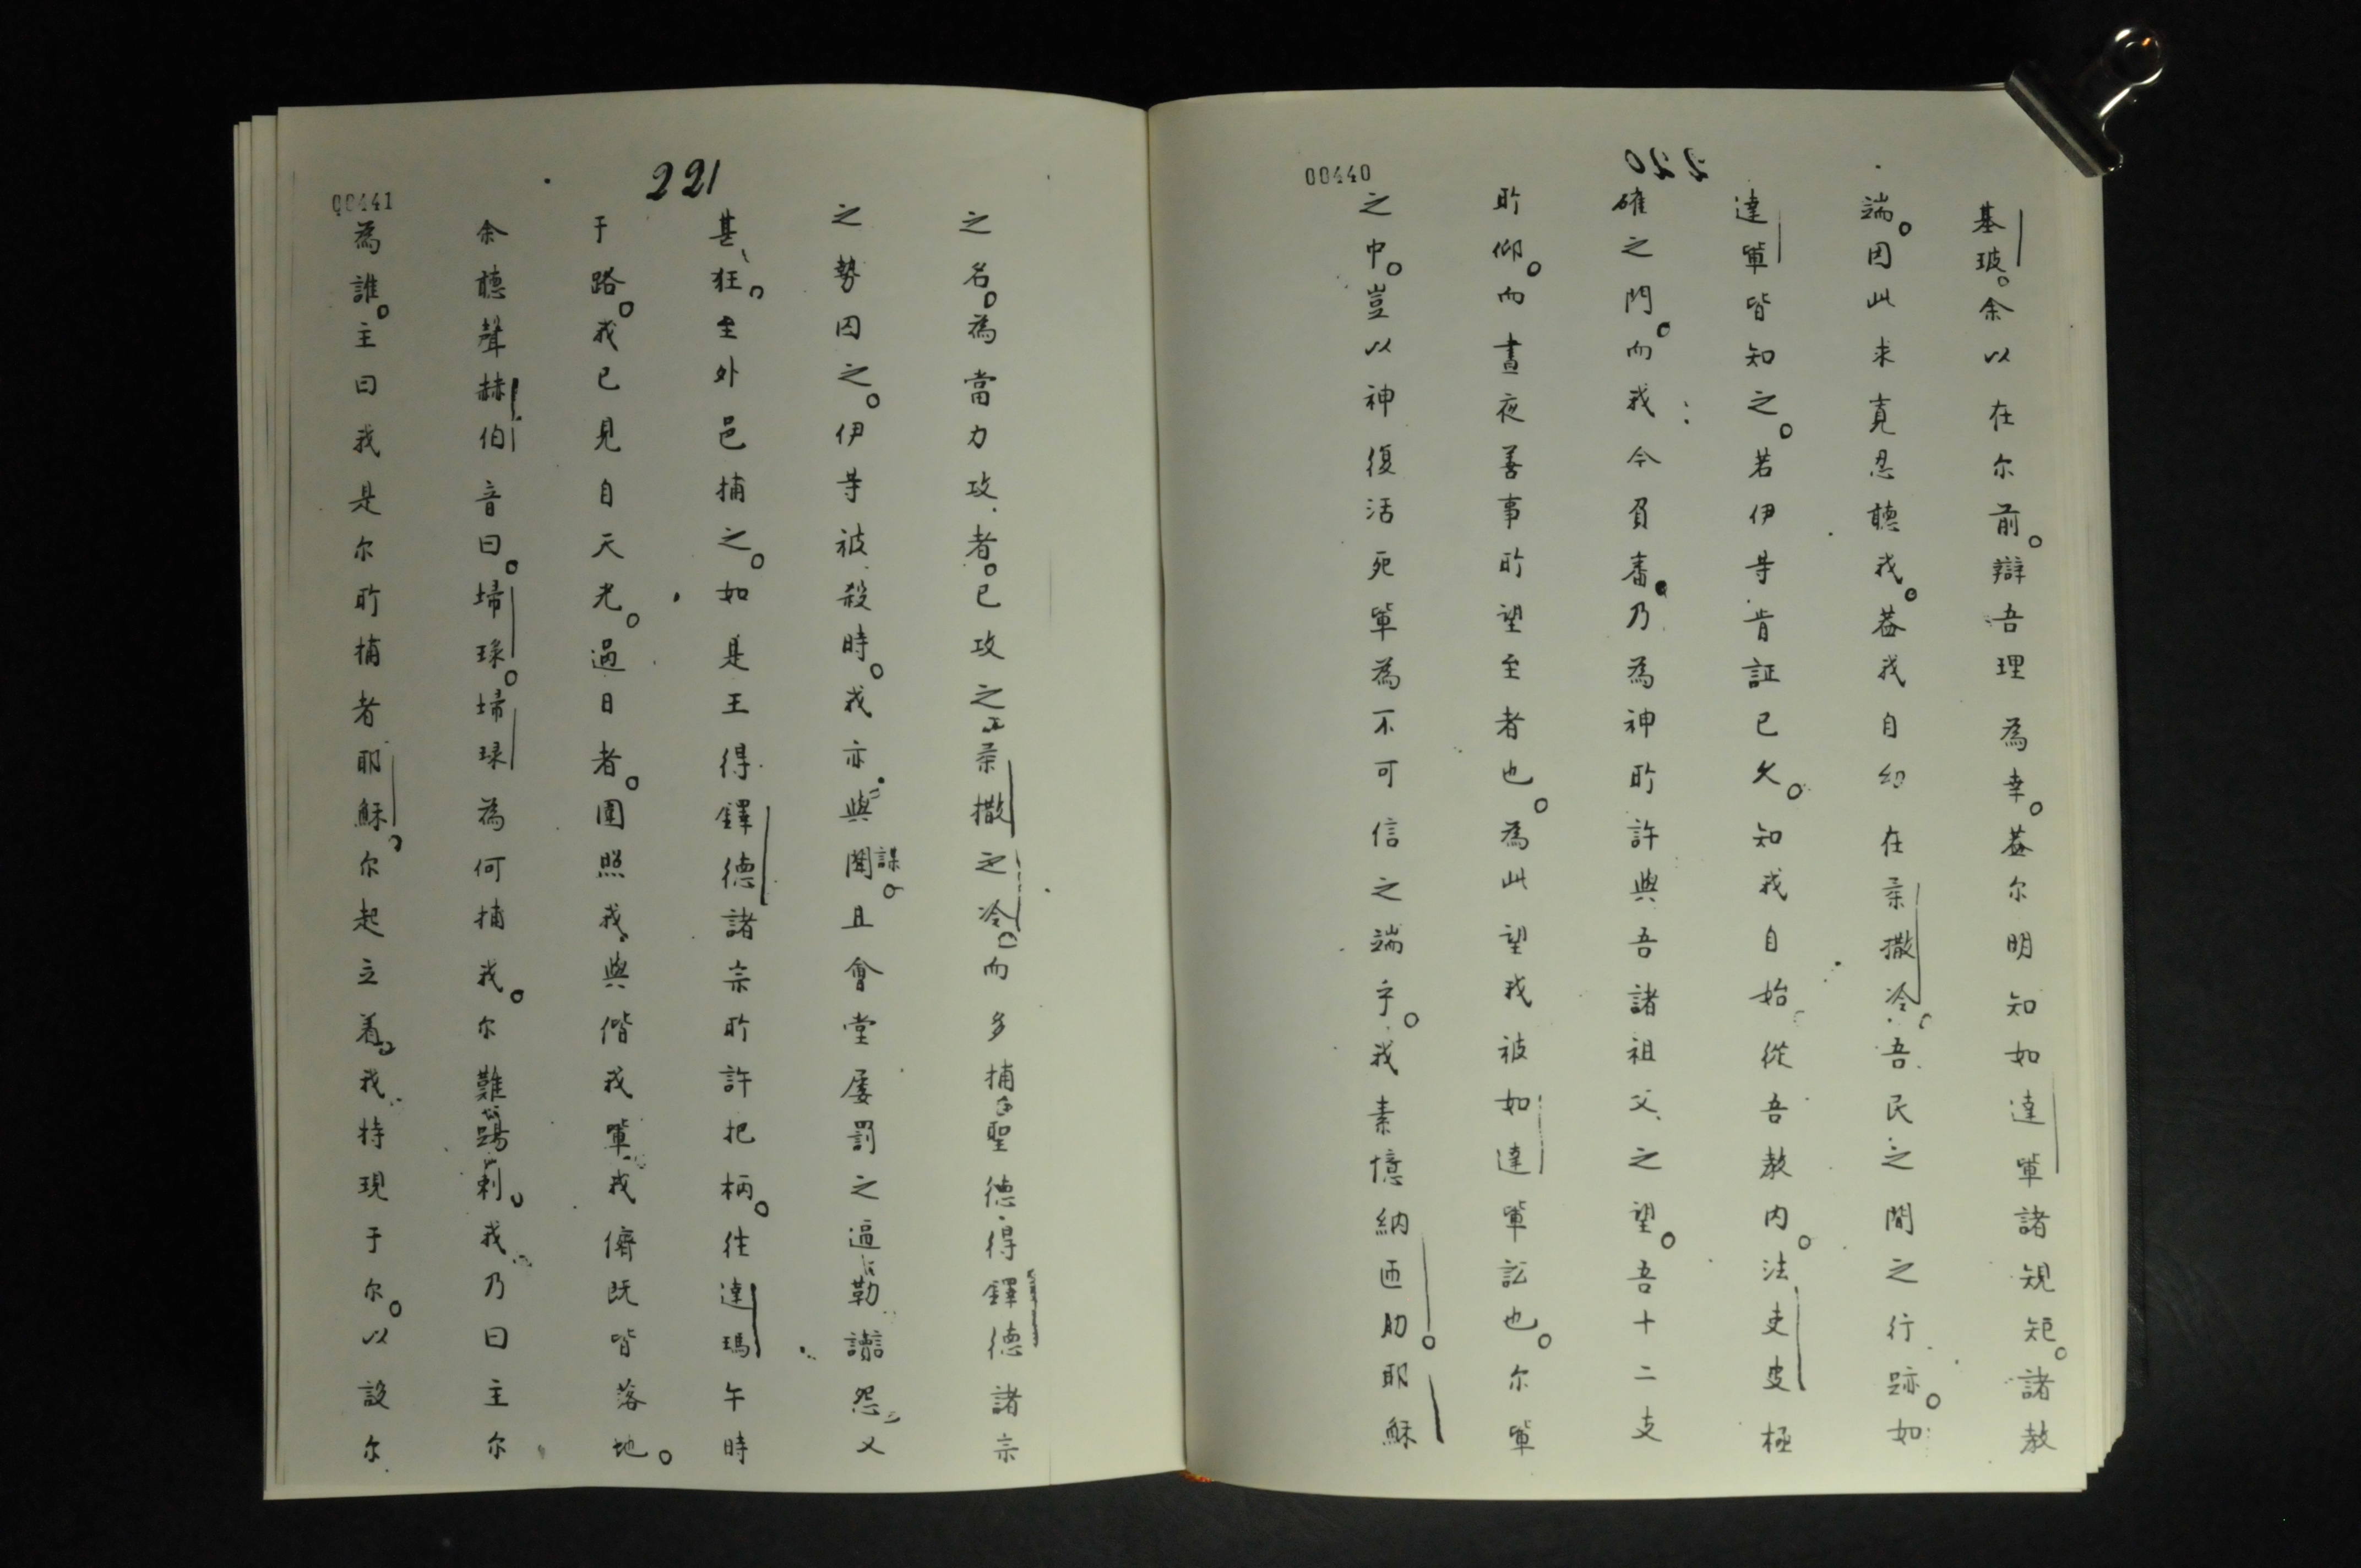 00440
220
基玻。余以在尔前。辯吾理為幸。葢尔明知如達軰諸規矩。諸教
端。因此求寛忍聽我。葢我自幼在柔撒冷。吾民之間之行跡。如
達軰皆知之。若伊等肯証已久。知我自始從吾教内。法吏皮極
確之門。而我今負審。乃為神所許與吾諸祖父之望。吾十二支
所仰。而晝夜善事所望至者也。為此望我被如達軰訟也。尔軰
之中。豈以神復活死軰為不可信之端乎。我素憶納匝肋耶穌
00441
221
之名。為當力攻者。已攻之柔撒之冷。而多捕聖德得鐸德諸宗
之勢囚之。伊等被殺時。我亦與闍謀。且會堂屡罰之逼勒讟怨。又
甚狂。至外邑捕之。如是王得鐸德諸宗所許把柄。徃達瑪午時
于路。我已見自天光。過日者。圍照我。與偕我軰。我儕既皆落地。
余聽聲赫伯音曰。埽琭。埽琭為何捕我。尔難踢刺。我乃曰主尔
為誰。主曰我是尔所捕者耶穌。尔起立着。我特現于尔。以設尔